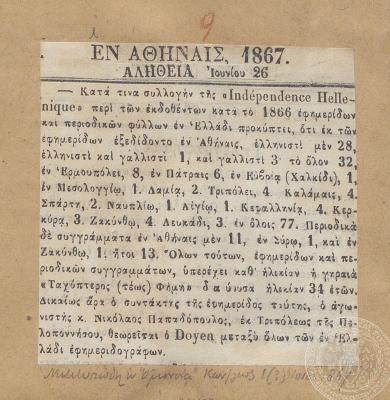 9
ΕΝ ΑΘΗΝΑΙΣ, 1867.
ΑΛΗΘΕΙΑ Ἰουνίου 26
— Κατά τινα συλλογὴν τῆς «Indépendence Helle-
nique» περὶ τῶν ἐκδοθέντων κατὰ τὸ 1866 ἐφημερίδων
καὶ περιοδικῶν φύλλων ἐν Ἑλλάδι προκύπτει, ὅτι ἐκ τῶν
ἐφημερίδων ἐξεδίδοντο ἐν Ἀθήναις, ἑλληνιστὶ μὲν 28,
ἑλληνιστὶ καὶ γαλλιστὶ 1, καὶ γαλλιστὶ 3· τὸ ὅλον 32,
ἐν Ἑρμουπόλει, 8, ἐν Πάτραις 6, ἐν Εὐβοίᾳ (Χαλκίδι), 1,
ἐν Μεσολογγίῳ, 1. Λαμίᾳ, 2. Τριπόλει, 4. Καλάμαις, 4.
Σπάρτῃ, 2. Ναυπλίῳ, 1. Αἰγίῳ, 1. Κεφαλληνίᾳ, 4. Κερ-
κύρᾳ, 3. Ζακύνθῳ, 4. Λευκάδι, 3. ἐν ὅλοις 77. Περιοδικὰ
δὲ συγγράμματα ἐν Ἀθήναις μὲν 11, ἐν Σύρῳ, 1, καὶ ἐν
Ζακύνθῳ, 1. ἤτοι 13. Ὅλων τούτων, ἐφημερίδων καὶ πε-
ριοδικῶν συγγραμμάτων, ὑπερέχει καθ' ἡλικίαν ἡ γηραιὰ
«Ταχύπτερος (τέως) Φήμη» διανύουσα ἡλικίαν 34 ἐτῶν.
Δικαίως ἄρα ὁ συντάκτης τῆς ἐφημερίδος ταύτης, ὁ ἀγω-
νιστὴς κ. Νικόλαος Παπαδόπουλος, ἐκ Τριπόλεως τῆς Πε-
λοποννήσου, θεωρεῖται ὁ Doyen μεταξὺ ὅλων τῶν ἐν Ἑλ-
λάδι ἐφημεριδογράφων.